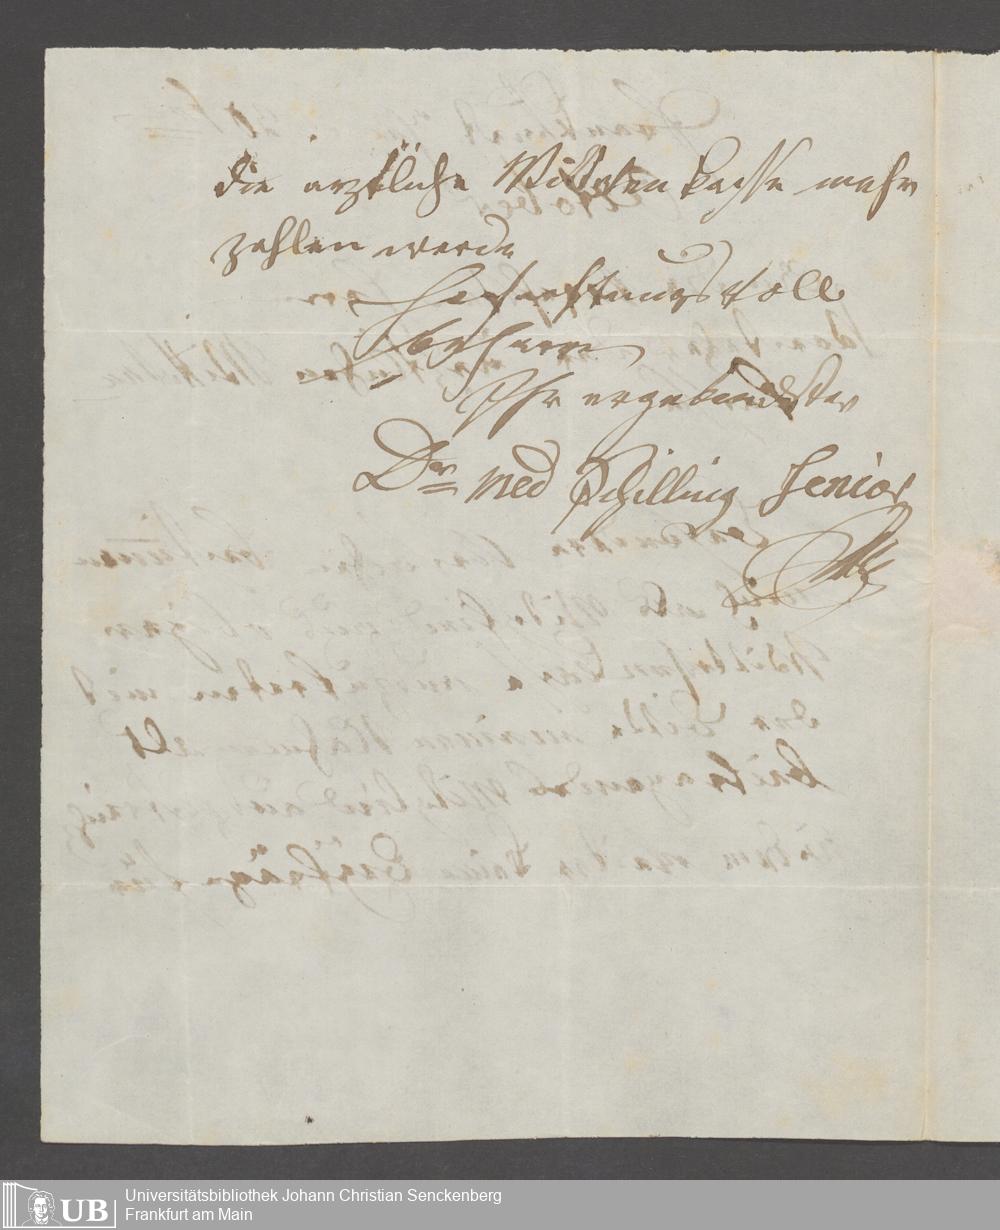 die arztliche Wittwen kasse mehr
zahlen werde
Hochachtungsvoll
beharre
Ihr ergebendster
Dr med Schilling Senior
UB Universitätsbibliothek Johann Christian Senckenberg
Frankfurt am Main